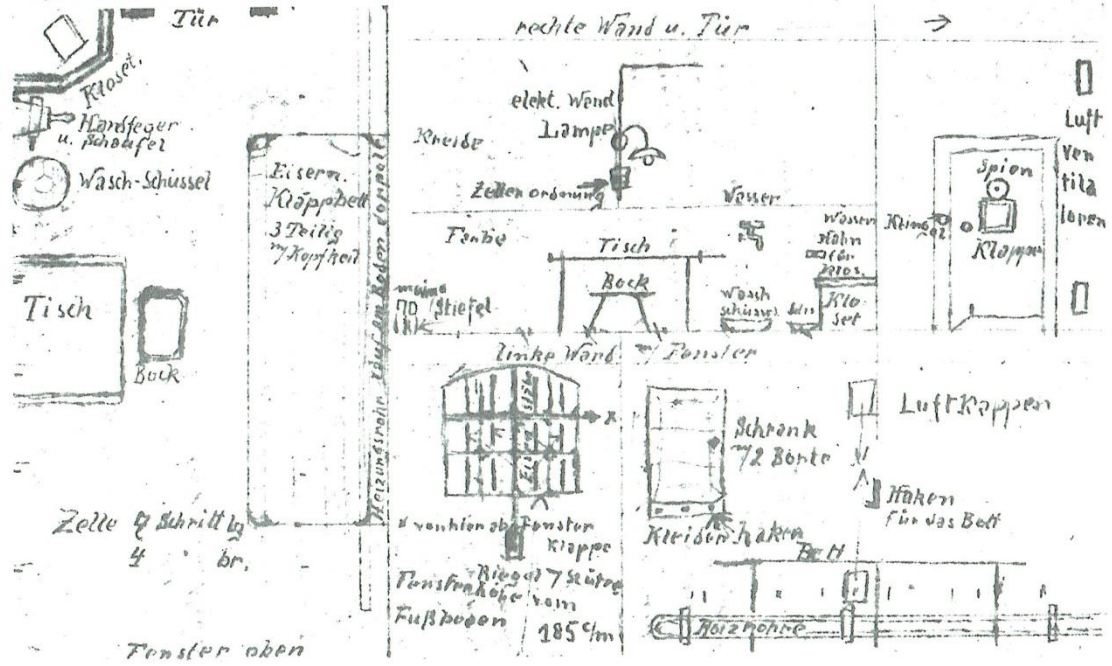 Tür
Kloset.
Handfeger
u. Schaufel
Wasch-Schüssel
Eisern.
Klappbett
3 Teilig
m/Kopfkeil
Heizungsrohr läuft am Boden doppelt
Tisch
Bock
Zelle 7 Schritt lg
4 " br.
Fenster oben
rechte Wand u. Tür
elekt. Wand
Lampe
Kreide
Zellenordnung
Farbe
Tisch
Bock
meine
Stiefel
Wasser
Wasser
Hahn
für
Klos.
Wasch
schüssel
Klo
set
Spion
Klingel
Klappe
Luft
ven
tila
toren
linke Wand m/ Fenster
Eisen Stäbe
x
x von hier ab Fenster
Klappe
Riegel
Fensterhöhe vom
Fußboden
185 c/m
Schrank
m/2 Borte
Kleiderhaken
Luftklappen
Haken
für das Bett
Bett
Heizrohre